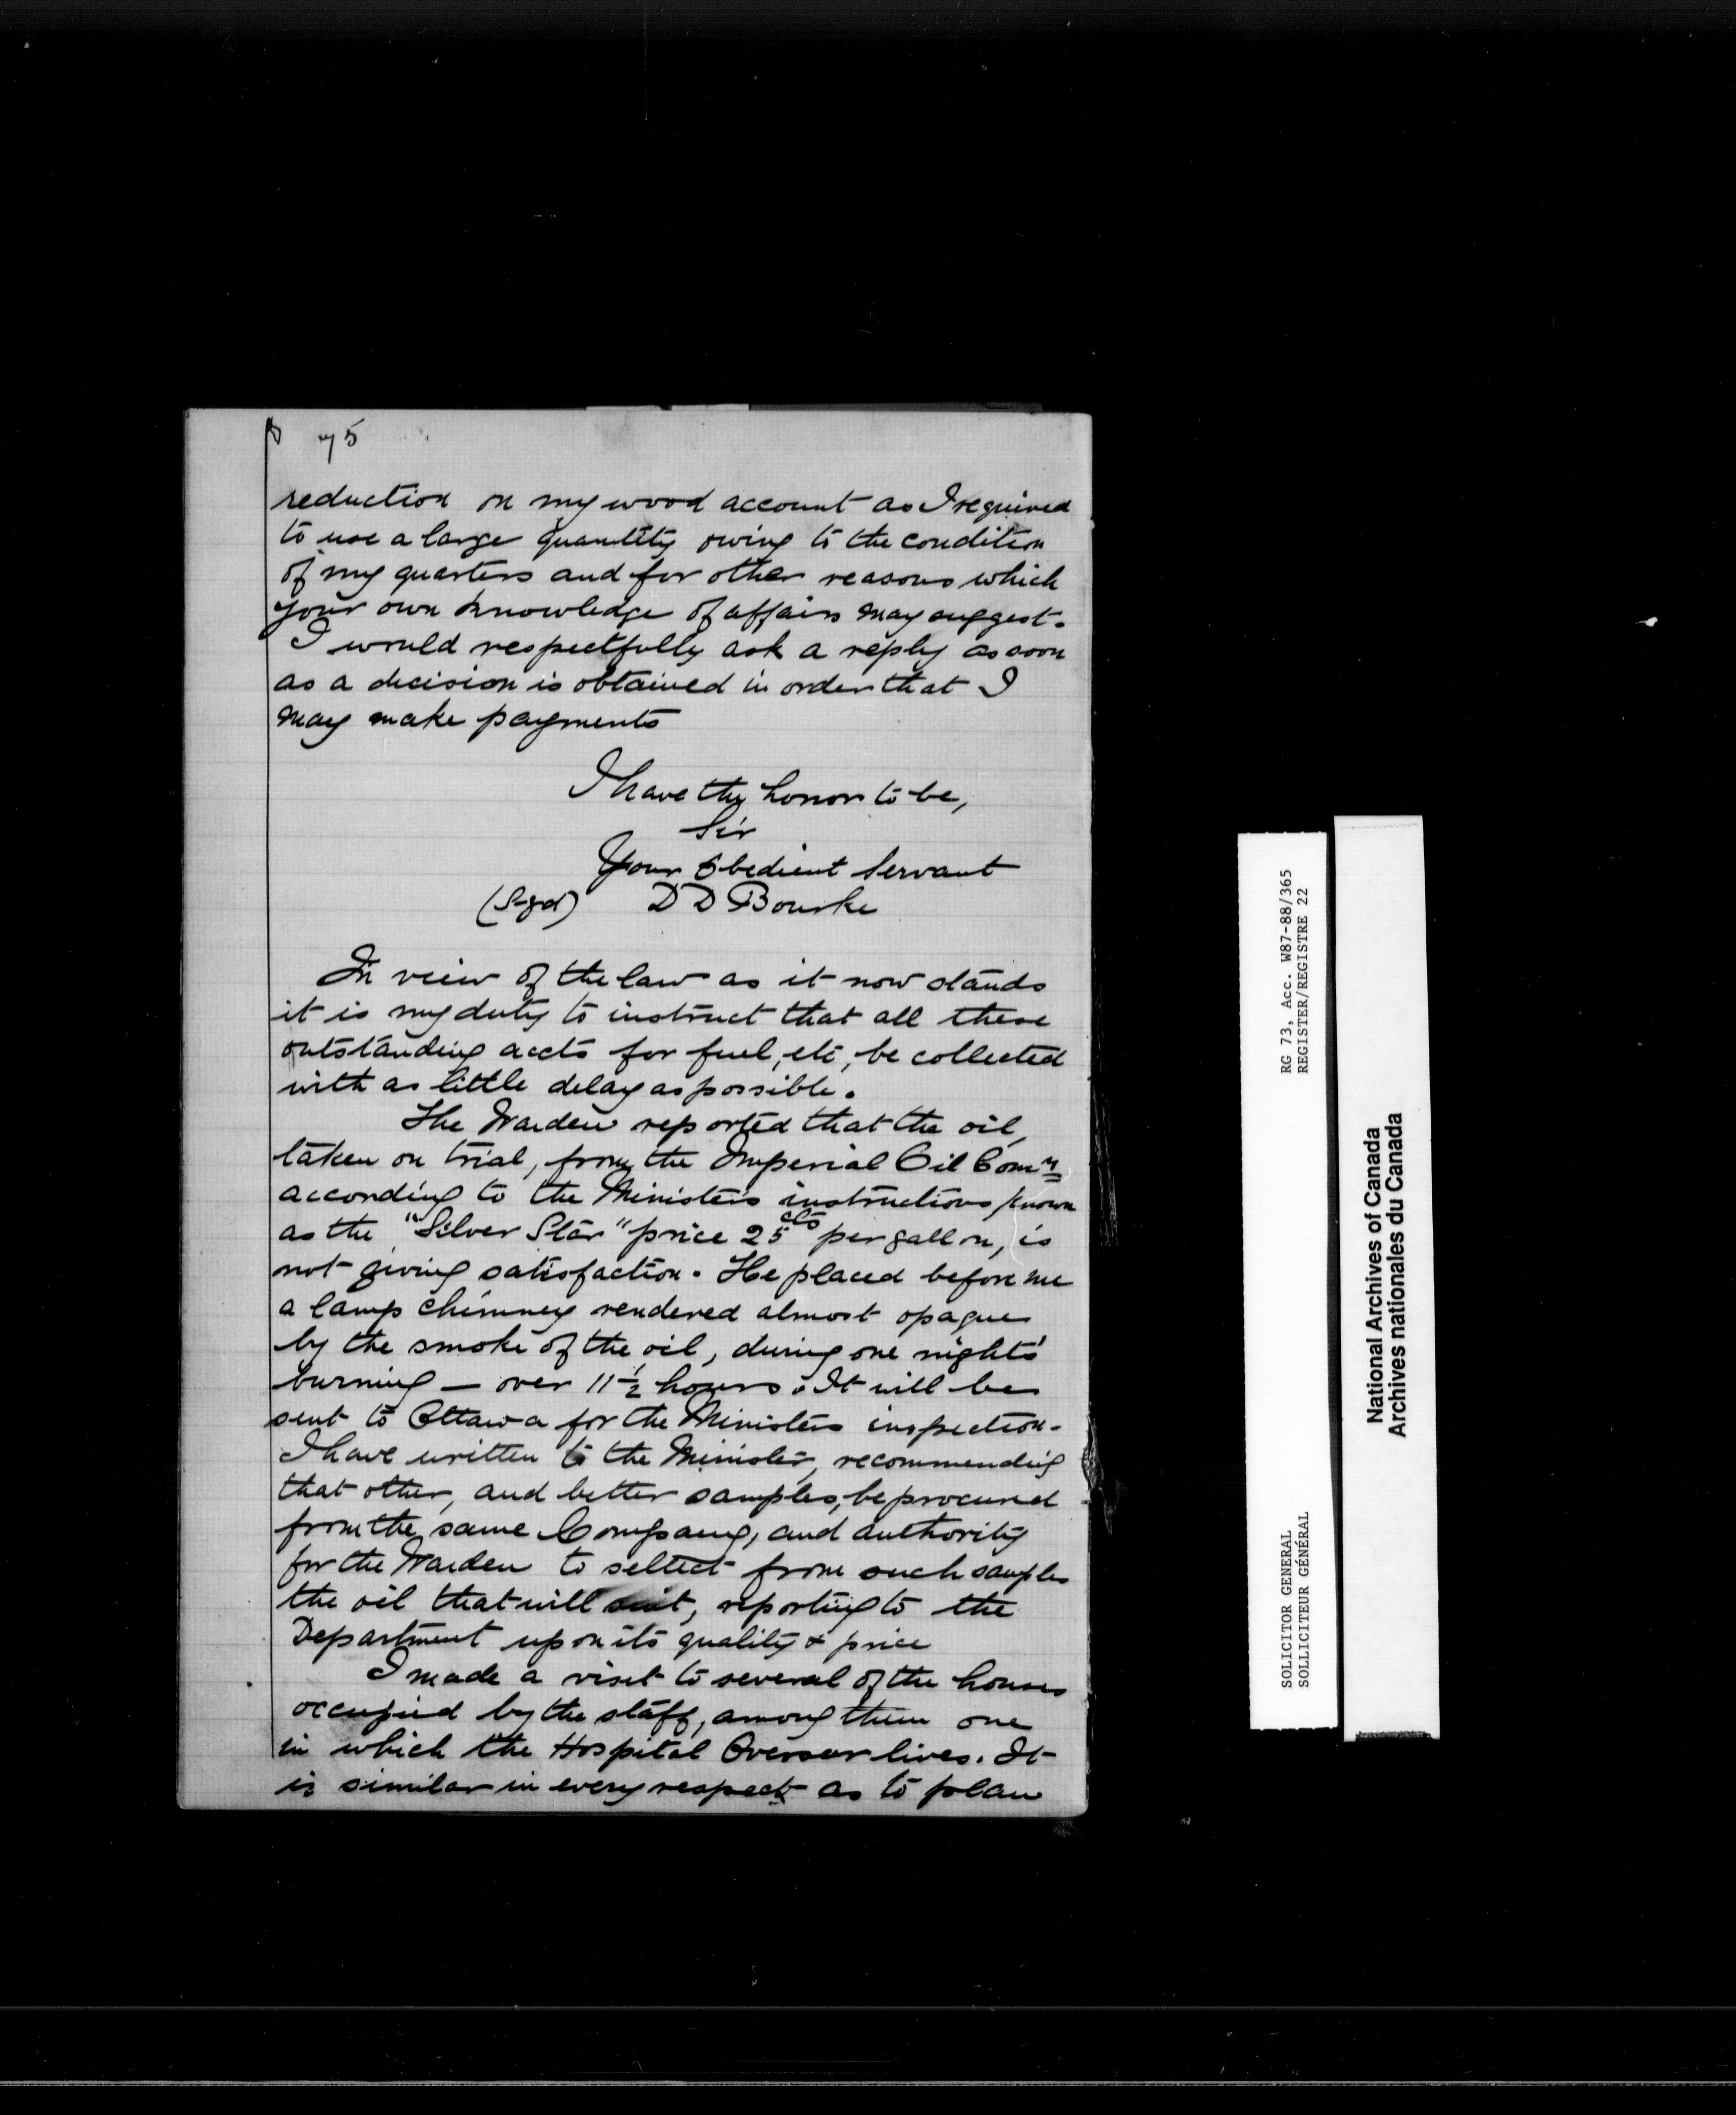 75
reduction on my wood account as I required
to use a large quantity owing to the condition
of my quarters and for other reasons which
your own knowledge of affairs may suggest.
I would respectfully ask a reply as soon
as a decision is obtained in order that I
may make payments
I have the honor to be,
Sir
Your Obedient Servant
(Sgd) D D Bourke
In view of the law as it now stands
it is my duty to instruct that all these
outstanding accts for fuel, etc, be collected
with as little delay as possible.
The Warden reported that the oil,
taken on trial, from the Imperial Oil Comy
according to the Ministers instructions known
as the "Silver Star" price 25cts per gallon, is
not giving satisfaction. He placed before me
a lamp chimney rendered almost opaque
by the smoke of the oil, during one nights'
burning — over 11½ hours. It will be
sent to Ottawa for the Ministers inspection.
I have written to the Minister, recommending
that other, and better samples, be procured
from the same Company, and authority
for the Warden to sellect from such samples
the oil that will suit, reporting to the
Department upon its quality & price
I made a visit to several of the houses
occupied by the staff, among them one
in which the Hospital Overseer lives. It
is similar in every respect as to plan
RG 73, Acc. W87-88/365
REGISTER/REGISTRE 22
SOLICITOR GENERAL
SOLLICITEUR GÉNÉRAL
National Archives of Canada
Archives nationales du Canada